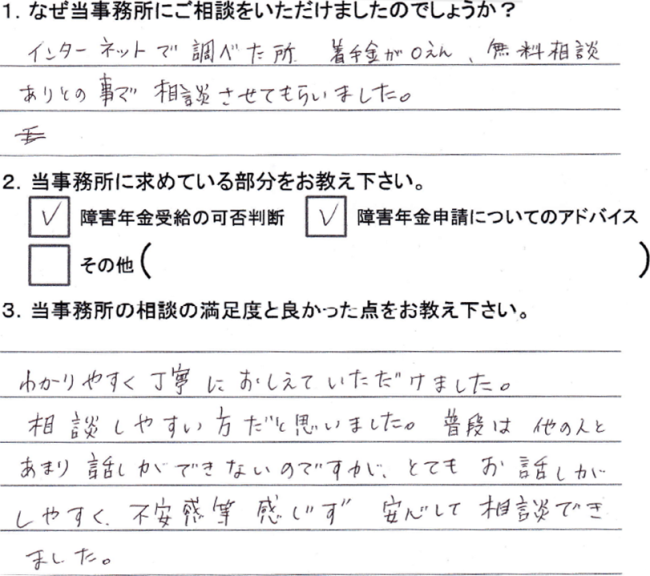 1. なぜ当事務所にご相談をいただけましたのでしょうか？
インターネットで調べた所 着手金が0えん、無料相談
ありとの事で 相談させてもらいました。
2. 当事務所に求めている部分をお教え下さい。
✓ 障害年金受給の可否判断 ✓ 障害年金申請についてのアドバイス
その他（ ）
3. 当事務所の相談の満足度と良かった点をお教え下さい。
わかりやすく丁寧におしえていただけました。
相談しやすい方だと思いました。普段は他の人と
あまり話しができないのですが、とてもお話しが
しやすく、不安感等感じず 安心して相談でき
ました。